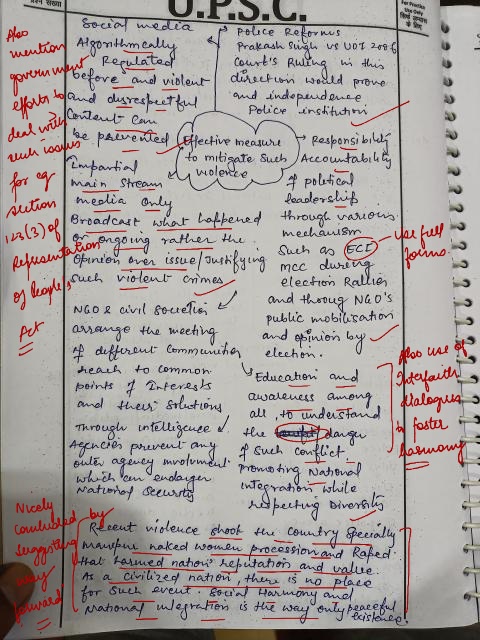 प्रश्न संख्या
U.P.S.C.
For Practice
Use Only
Also
mention
government
efforts to
deal with
such issues
for eg
section
123(3) of
Representation
of People's
Act
Social media
Algorithmically
Regulated
before and violent
and disrespectful
Content can
be prevented
Police Reforms
Prakash Singh vs UOI 2006
Court's Ruling in this
direction would prove
and independence
Police institution
Effective measure
to mitigate such
violence
Impartial
main stream
media only
Broadcast what happened
or ongoing rather the
opinion over issue/Justifying
such violent crimes
Responsibility
Accountability
of political
leadership
through various
mechanism
such as ECI
MCC during
election Rallies
and throug NGO's
public mobilisation
and opinion by
election.
use full
forms
NGO & civil societies
arrange the meeting
of different communities
reach to common
points of Interests
and their solutions
Through intelligence
Agencies prevent any
outer agency involvment
which can endager
National security
Education and
awareness among
all, to understand
the danger
of such conflict.
promoting National
integration while
respecting Diversity
Also use of
Interfaith
dialogues
to foster
harmony
Nicely
concluded by
suggesting
way
forward
Recent violence shook the country specially
manipur naked women procession and Raped.
that harmed nation's reputation and value.
As a civilized nation, there is no place
for such event. Social Harmony and
National integration is the way only peaceful
existence.